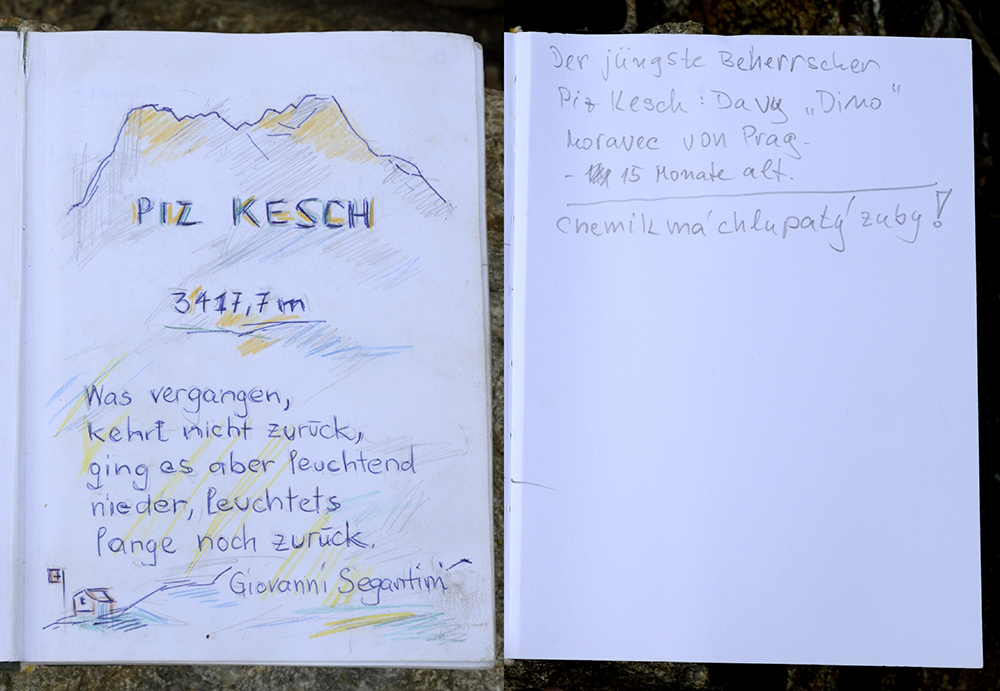 PIZ KESCH
3417,7 m
Was vergangen,
kehrt nicht zurück,
ging es aber leuchtend
nieder, leuchtets
lange noch zurück.
Giovanni Segantini
Der jüngste Beherrscher
Piz Kesch: Davy „Dimo“
Moravec von Prag.
- 15 Monate alt.
Chemik má chlupatý zuby!